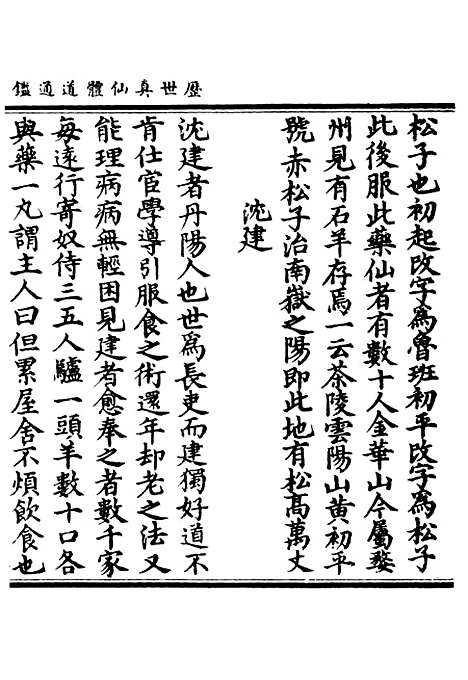 歷世真仙體道通鑑
松子也初起改字為魯班初平改字為松子
此後服此藥仙者有數十人金華山今屬婺
州見有石羊存焉一云茶陵雲陽山黃初平
號赤松子治南嶽之陽即此地有松高萬丈
沈建
沈建者丹陽人也世為長吏而建獨好道不
肯仕宦學導引服食之術還年却老之法又
能理病病無輕困見建者愈奉之者數千家
每遠行寄奴侍三五人驢一頭羊數十口各
與藥一丸謂主人曰但累屋舍不煩飲食也